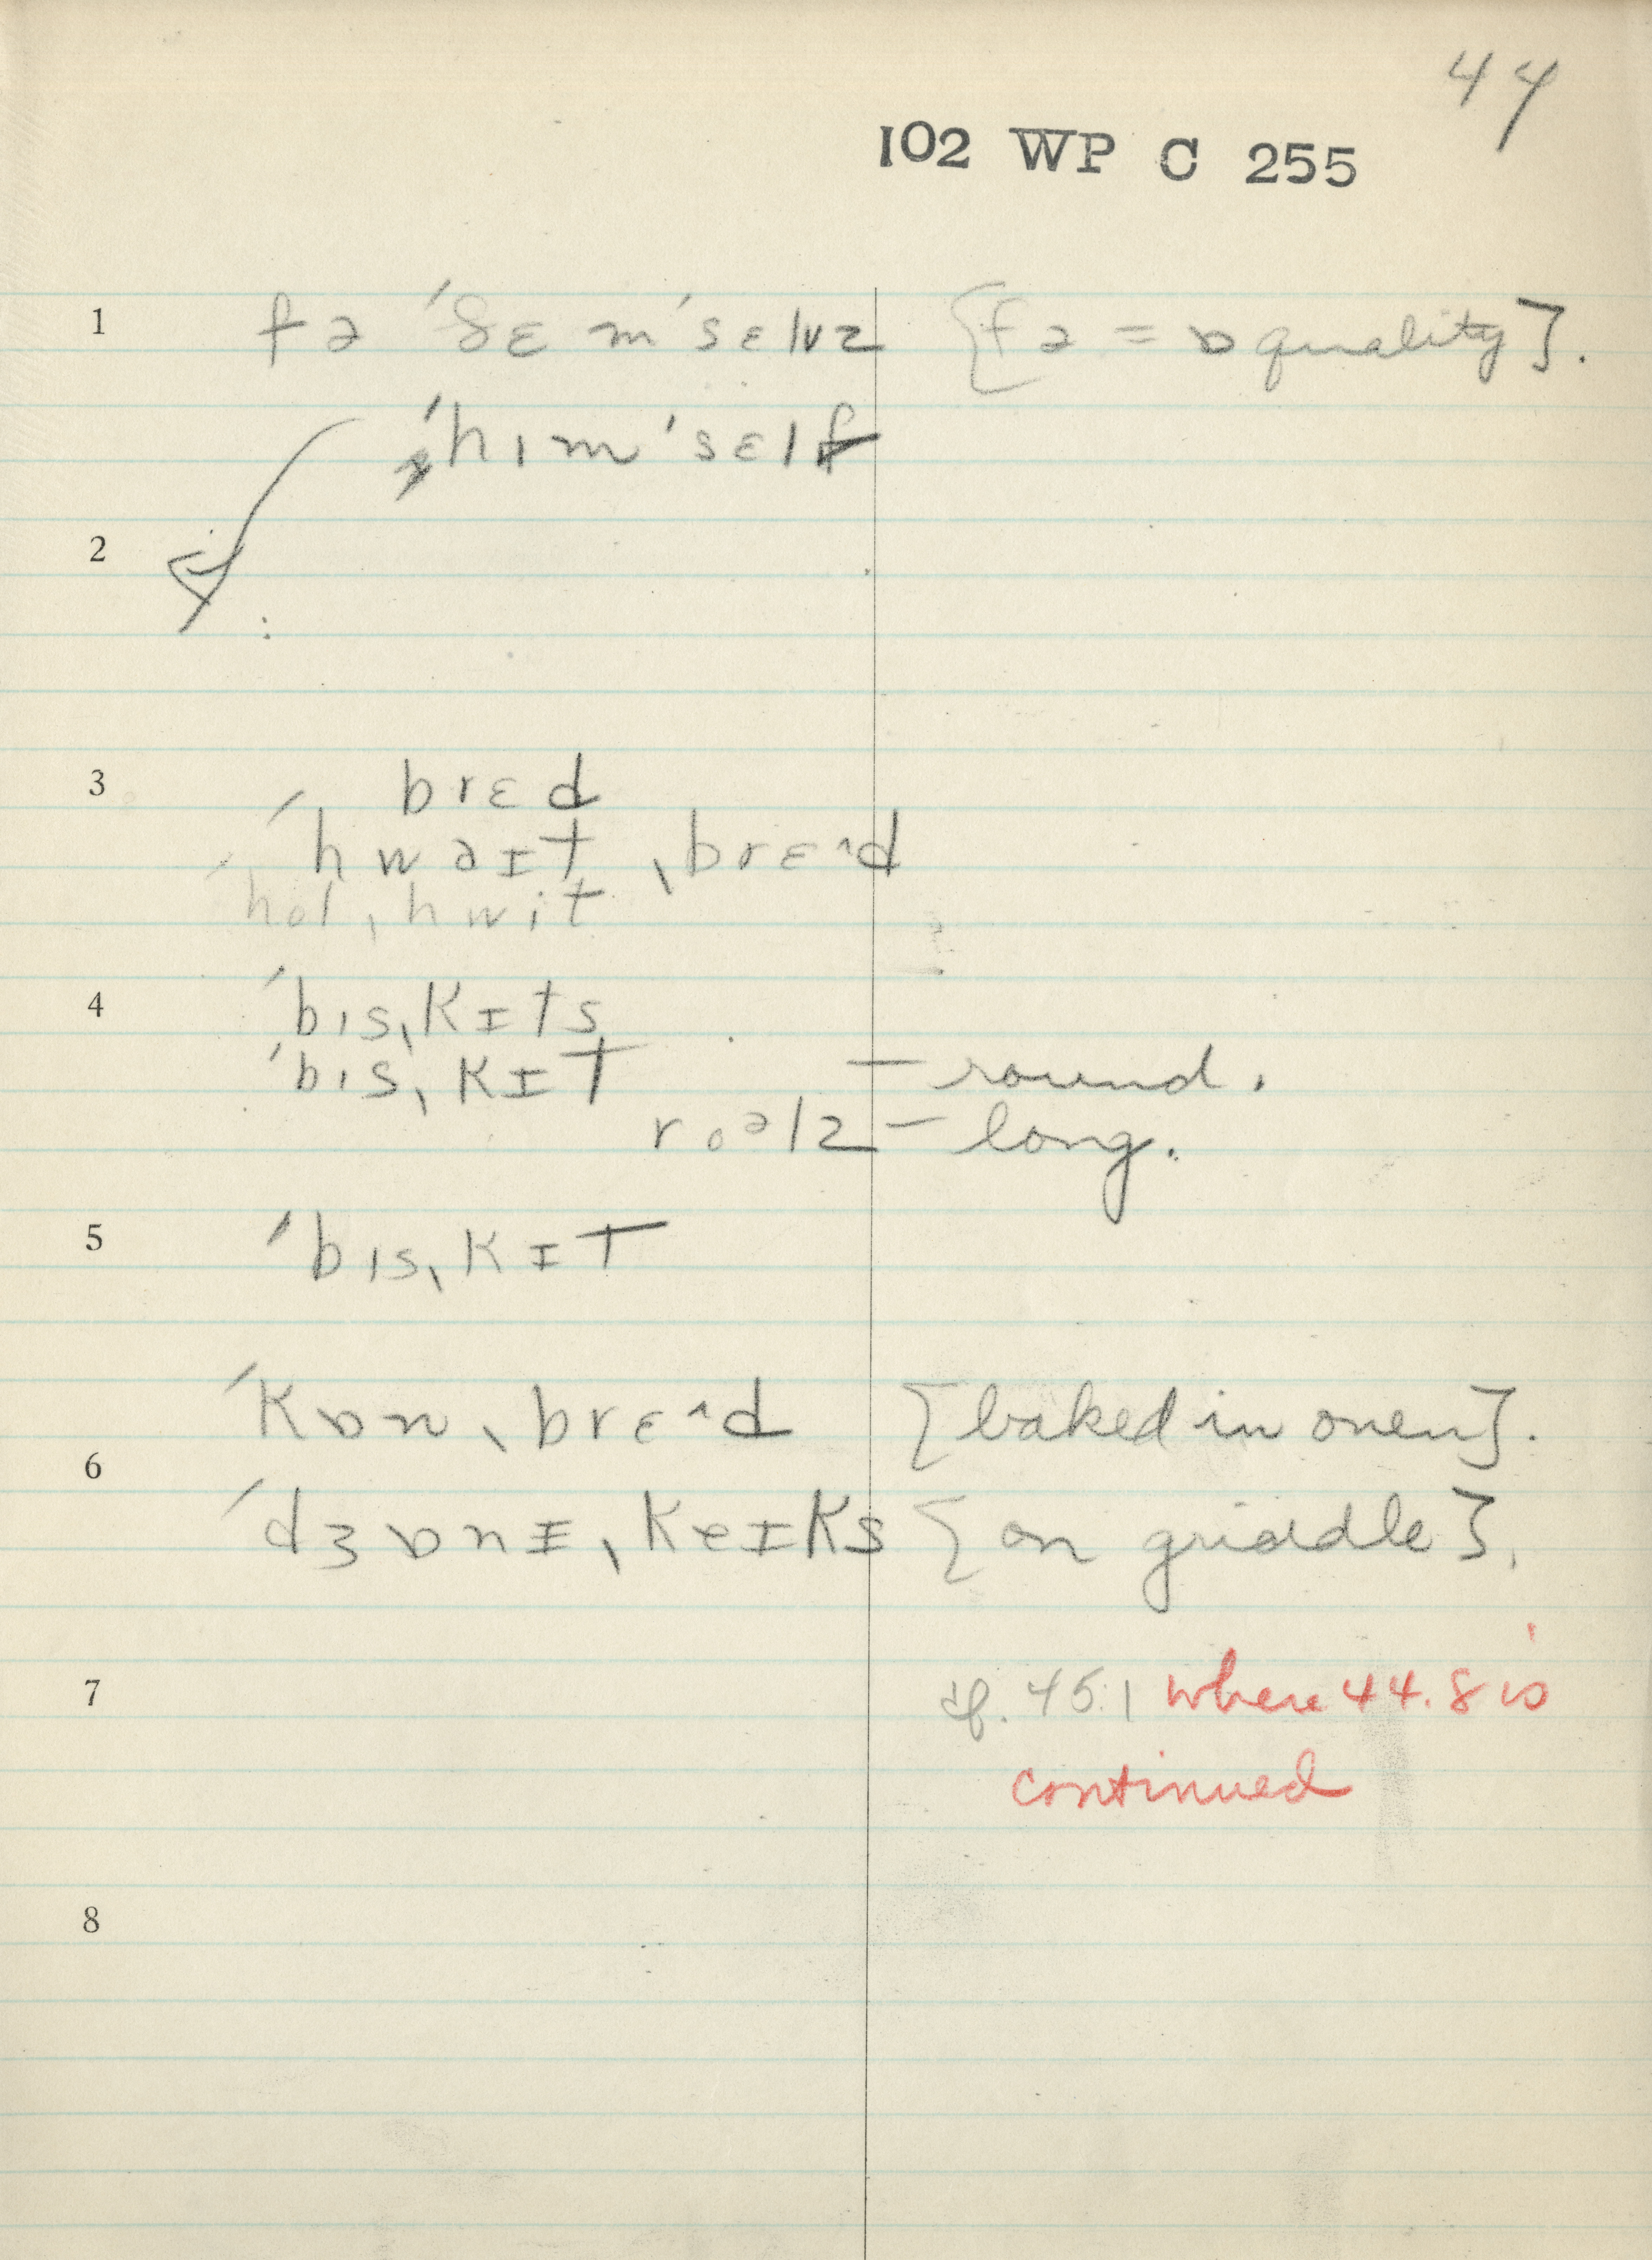 44
102 WP C 255
1 fə ˈðɛmˈsɛlvz [fə = ɒ quality].
ˈhɪmˈsɛlf
2
:
3 brɛd
ˈhwaɪt ˌbrɛ^d
ˈhol ˌhwit
4 ˈbɪsˌkɪts
ˈbɪsˌkɪt — round.
roəlz — long.
5 ˈbɪsˌkɪt
ˈkɒn ˌbrɛ^d [baked in oven].
6
ˈdʒɒnɪ ˌkeɪks [on griddle].
7 cf. 45.1 where 44.8 is
continued
8